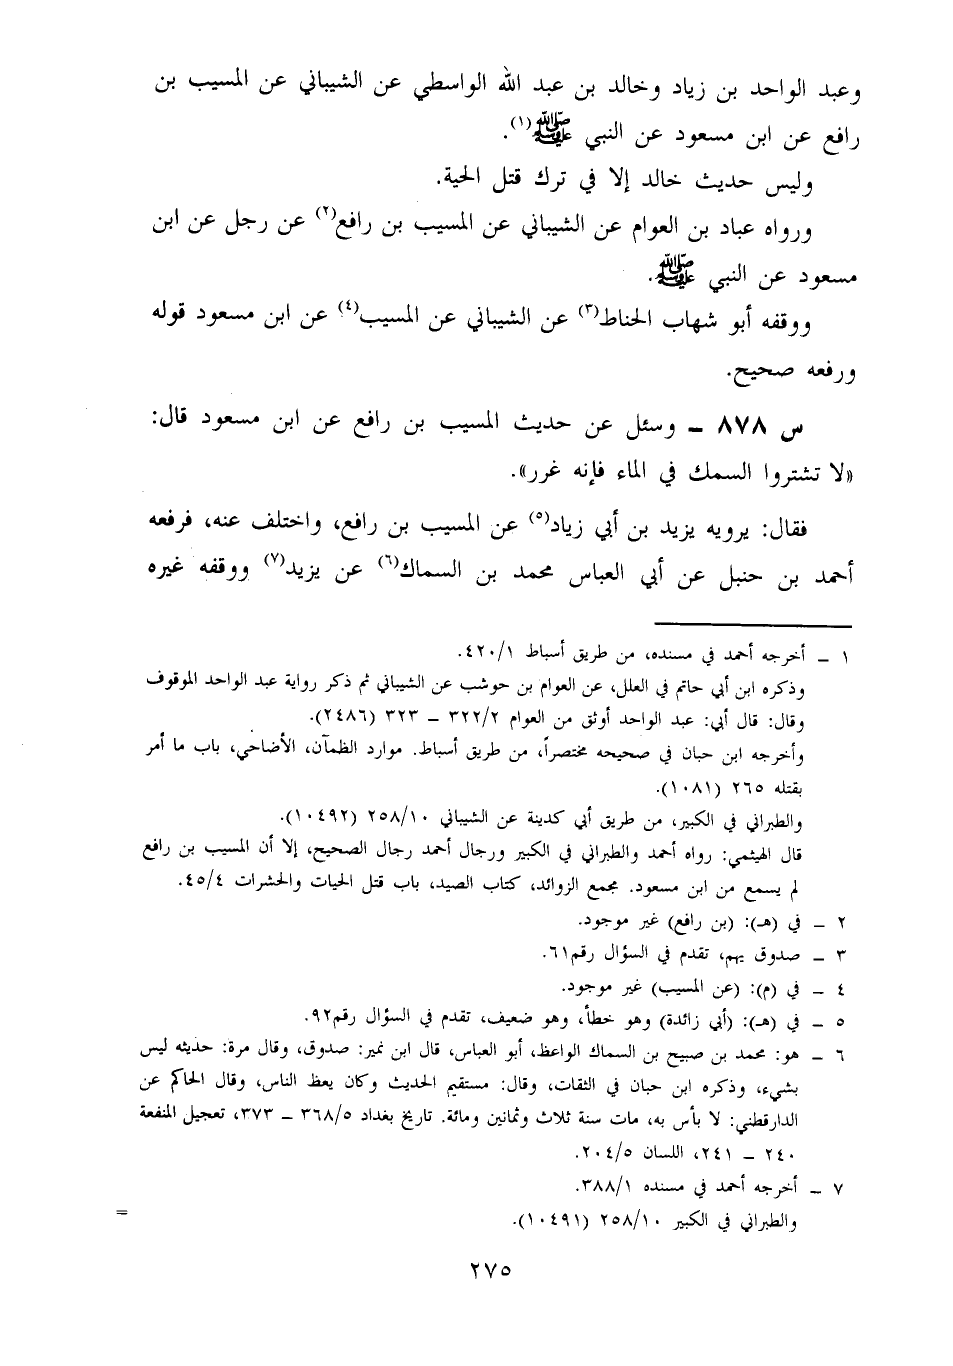 وعبد الواحد بن زياد وخالد بن عبد الله الواسطي عن الشيباني عن المسيب بن
رافع عن ابن مسعود عن النبي ﷺ(١).
وليس حديث خالد إلا في ترك قتل الحية.
ورواه عباد بن العوام عن الشيباني عن المسيب بن رافع(٢) عن رجل عن ابن
مسعود عن النبي ﷺ.
ووقفه أبو شهاب الحناط(٣) عن الشيباني عن المسيب(٤) عن ابن مسعود قوله
ورفعه صحيح.
س ٨٧٨ ـ وسئل عن حديث المسيب بن رافع عن ابن مسعود قال:
«لا تشتروا السمك في الماء فإنه غرر».
فقال: يرويه يزيد بن أبي زياد(٥) عن المسيب بن رافع، واختلف عنه، فرفعه
أحمد بن حنبل عن أبي العباس محمد بن السماك(٦) عن يزيد(٧) ووقفه غيره
١ ـ أخرجه أحمد في مسنده، من طريق أسباط ٤٢٠/١.
وذكره ابن أبي حاتم في العلل، عن العوام بن حوشب عن الشيباني ثم ذكر رواية عبد الواحد الموقوف
وقال: قال أبي: عبد الواحد أوثق من العوام ٣٢٢/٢ ـ ٣٢٣ (٢٤٨٦).
وأخرجه ابن حبان في صحيحه مختصراً، من طريق أسباط. موارد الظمآن، الأضاحي، باب ما أمر
بقتله ٢٦٥ (١٠٨١).
والطبراني في الكبير، من طريق أبي كدينة عن الشيباني ٢٥٨/١٠ (١٠٤٩٢).
قال الهيثمي: رواه أحمد والطبراني في الكبير ورجال أحمد رجال الصحيح، إلا أن المسيب بن رافع
لم يسمع من ابن مسعود. مجمع الزوائد، كتاب الصيد، باب قتل الحيات والحشرات ٤٥/٤.
٢ ـ في (هـ): (بن رافع) غير موجود.
٣ ـ صدوق يهم، تقدم في السؤال رقم٦١.
٤ ـ في (م): (عن المسيب) غير موجود.
٥ ـ في (هـ): (أبي زائدة) وهو خطأ، وهو ضعيف، تقدم في السؤال رقم٩٢.
٦ ـ هو: محمد بن صبيح بن السماك الواعظ، أبو العباس، قال ابن نمير: صدوق، وقال مرة: حديثه ليس
بشيء، وذكره ابن حبان في الثقات، وقال: مستقيم الحديث وكان يعظ الناس، وقال الحاكم عن
الدارقطني: لا بأس به، مات سنة ثلاث وثمانين ومائة. تاريخ بغداد ٣٦٨/٥ ـ ٣٧٣، تعجيل المنفعة
٢٤٠ ـ ٢٤١، اللسان ٢٠٤/٥.
٧ ـ أخرجه أحمد في مسنده ٣٨٨/١.
والطبراني في الكبير ٢٥٨/١٠ (١٠٤٩١).
=
٢٧٥